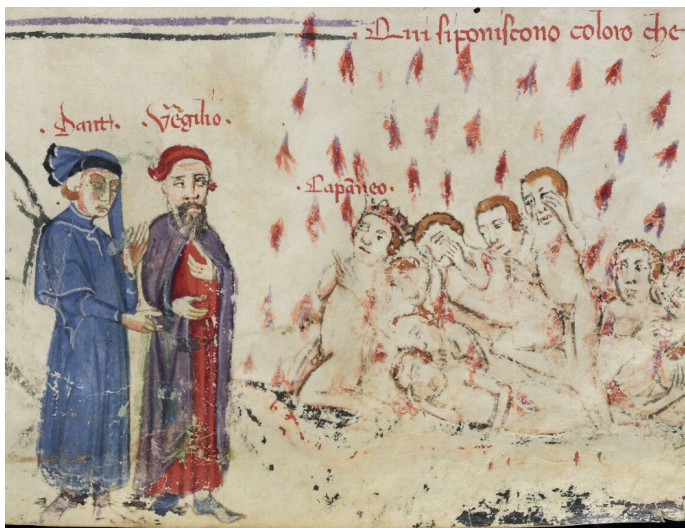 Qui si poniscono coloro che
. Dant . . Vergilio .
. Capaneo .